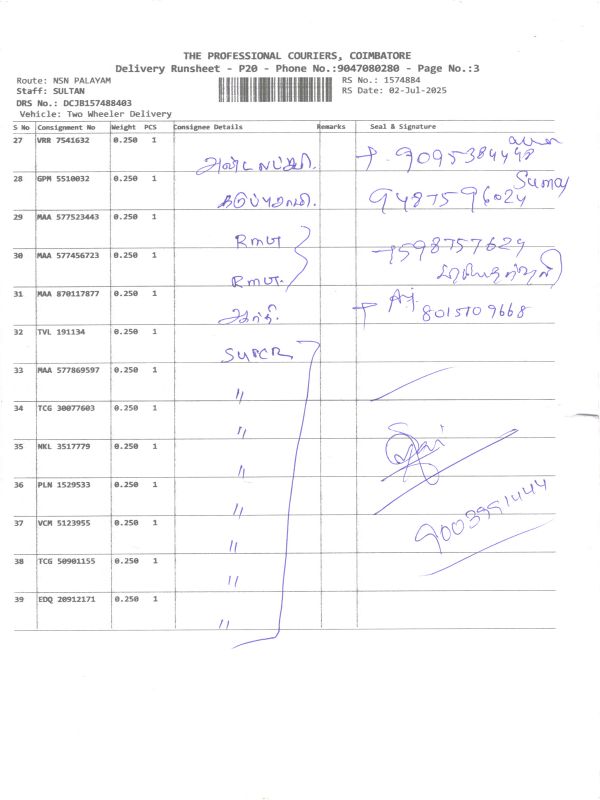 THE PROFESSIONAL COURIERS, COIMBATORE
Delivery Runsheet - P20 - Phone No.:9047080280 - Page No.:3
Route: NSN PALAYAM RS No.: 1574884
Staff: SULTAN RS Date: 02-Jul-2025
DRS No.: DCJB157488403
Vehicle: Two Wheeler Delivery
S No Consignment No Weight PCS Consignee Details Remarks Seal & Signature
27 VRR 7541632 0.250 1 9095384448
28 GPM 5510032 0.250 1 9487596024
29 MAA 577523443 0.250 1 RMUT 7598757629
30 MAA 577456723 0.250 1 RMUT
31 MAA 870117877 0.250 1 8015109668
32 TVL 191134 0.250 1 SUPER
33 MAA 577869597 0.250 1 〃
34 TCG 30077603 0.250 1 〃
35 NKL 3517779 0.250 1 〃
36 PLN 1529533 0.250 1 〃
37 VCM 5123955 0.250 1 〃 9003951444
38 TCG 50901155 0.250 1 〃
39 EDQ 20912171 0.250 1 〃